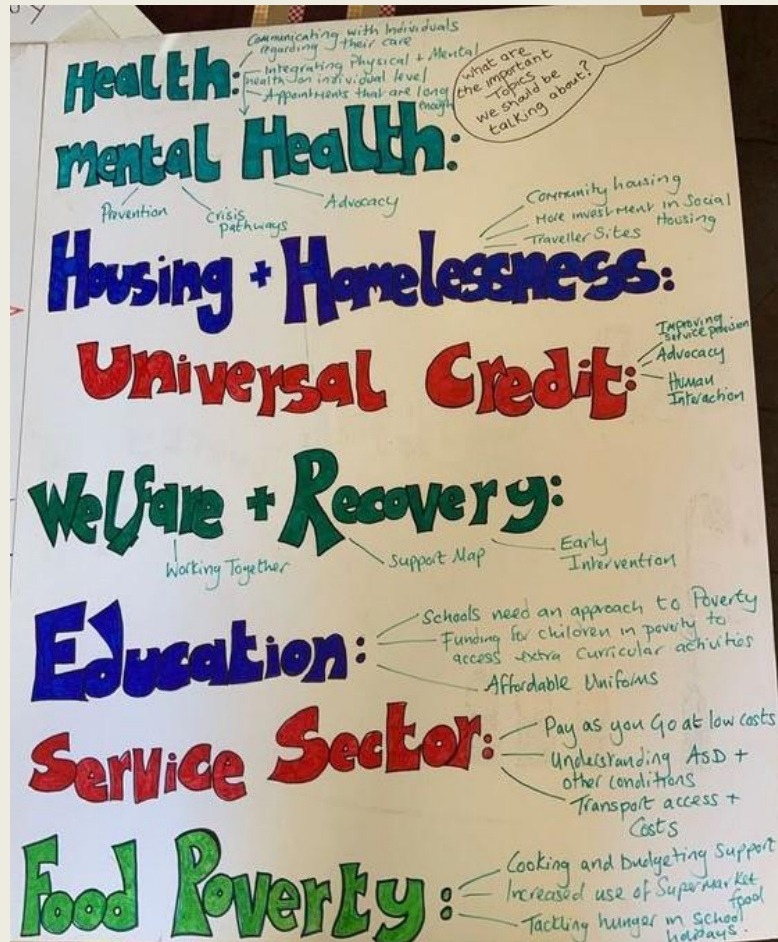 Health:
Communicating with Individuals
regarding their care
Integrating Physical + Mental
health on individual level
Appointments that are long
enough
what are
the important
Topics
we should be
talking about?
Mental Health:
Prevention
Crisis
pathways
Advocacy
Community housing
More investment in Social
Housing
Traveller Sites
Housing + Homelessness:
Universal Credit:
Improving
service provision
Advocacy
Human
Interaction
Welfare + Recovery:
Working Together
Support Map
Early
Intervention
Education:
Schools need an approach to Poverty
Funding for children in poverty to
access extra curricular activities
Affordable Uniforms
Service Sector:
Pay as you Go at low costs
Understanding ASD +
other conditions
Transport access +
Costs
Food Poverty:
Cooking and budgeting Support
Increased use of Supermarket
food
Tackling hunger in school
holidays.